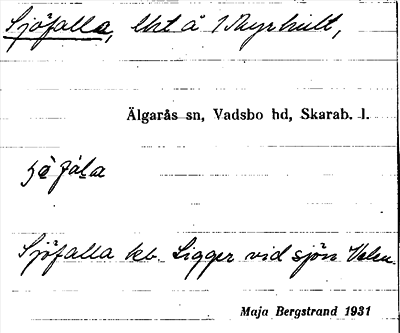 Sjöfalla, lht å 1 Myrhult,
Älgarås sn, Vadsbo hd, Skarab. l.
Sjöfalla kb. Ligger vid sjön Velen.
Maja Bergstrand 1931